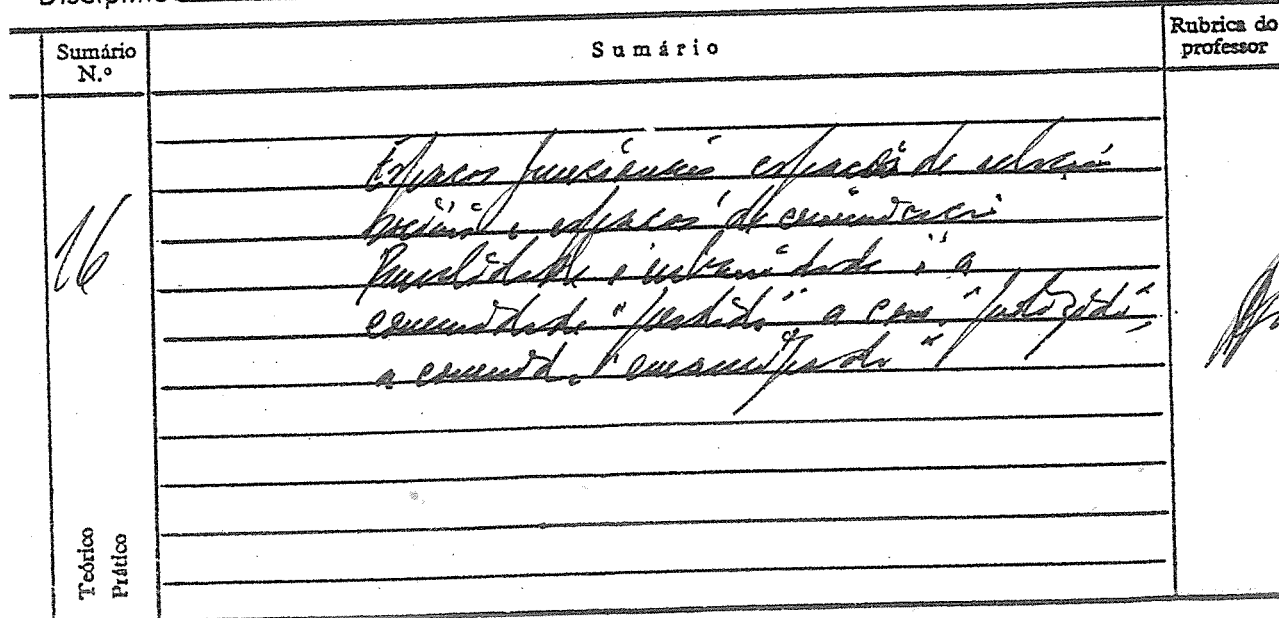 Sumário
N.º
Sumário
Rubrica do
professor
16
Espaços funcionais espaços de relação
social e espaços de comunicação
Ruralidade e urbanidade: a
comunidade "perdida" a com. "protegida",
a comunid. "emancipada"
Teórico
Prático